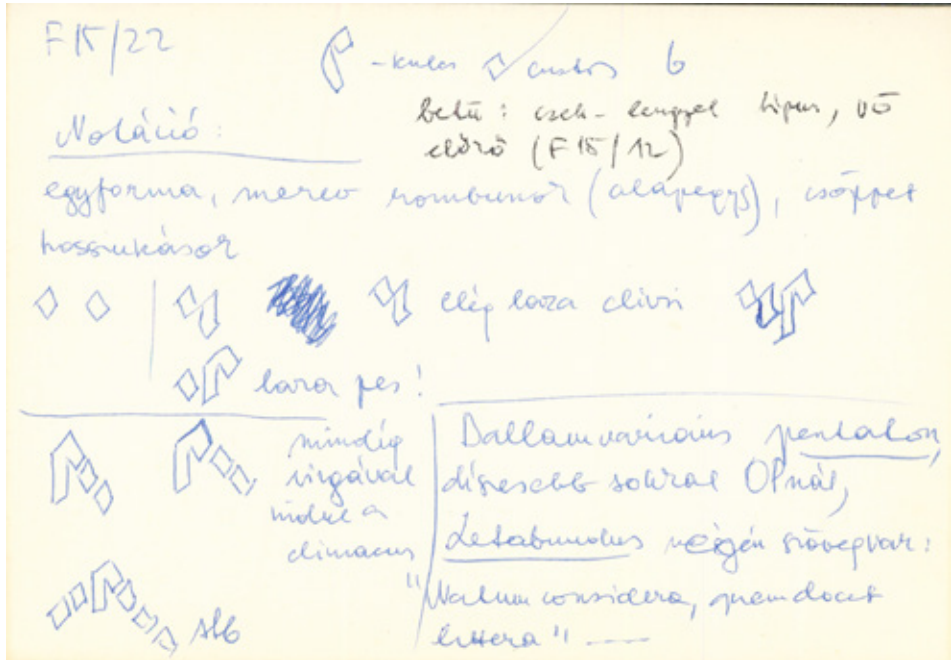 F 15/22
- kulcs custos b
betű : cseh - lengyel tipus, vö
előző (F 15/12)
Notáció :
egyforma, merev rombuszok (alapegys), csöppet
hosszukások
elég laza clivis
laza pes !
mindig
virgával
indul a
climacus
stb
Dallamvariáns pentaton,
díszesebb sokral OPnál,
Letabundus végén szövegvar :
"Natum considera, quem docet
littera" —